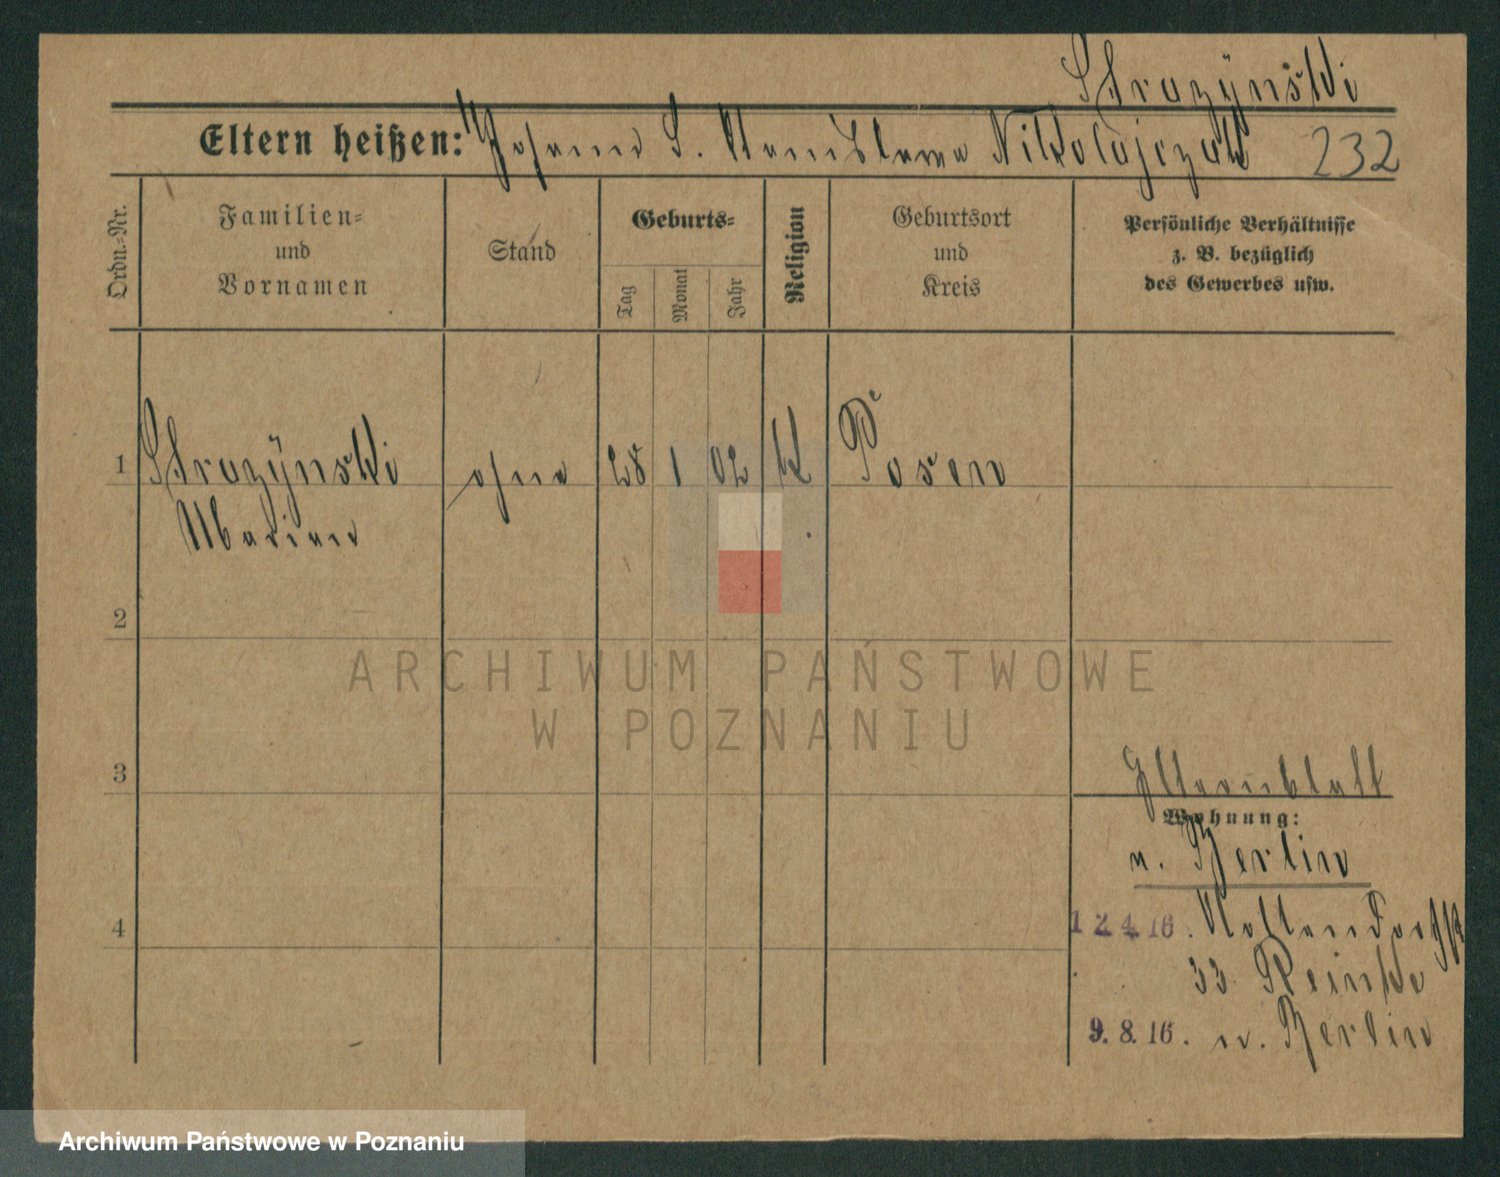 Strozÿnski
Eltern heißen: Johann S. Stanislawa Nikolajczak 232
Ordn.-Nr.
Familien-
und
Vornamen
Stand
Geburts-
Tag
Monat
Jahr
Religion
Geburtsort
und
Kreis
Persönliche Verhältnisse
z. B. bezüglich
des Gewerbes usw.
1 Strozÿnski ohne 28 1 02 K Posen
Marian
2
3
4
Elternblatt
Wohnung:
n. Berlin
12.4.16. Nollendorfstr
33 Reinke
9.8.16. n. Berlin
ARCHIWUM PAŃSTWOWE
W POZNANIU
Archiwum Państwowe w Poznaniu